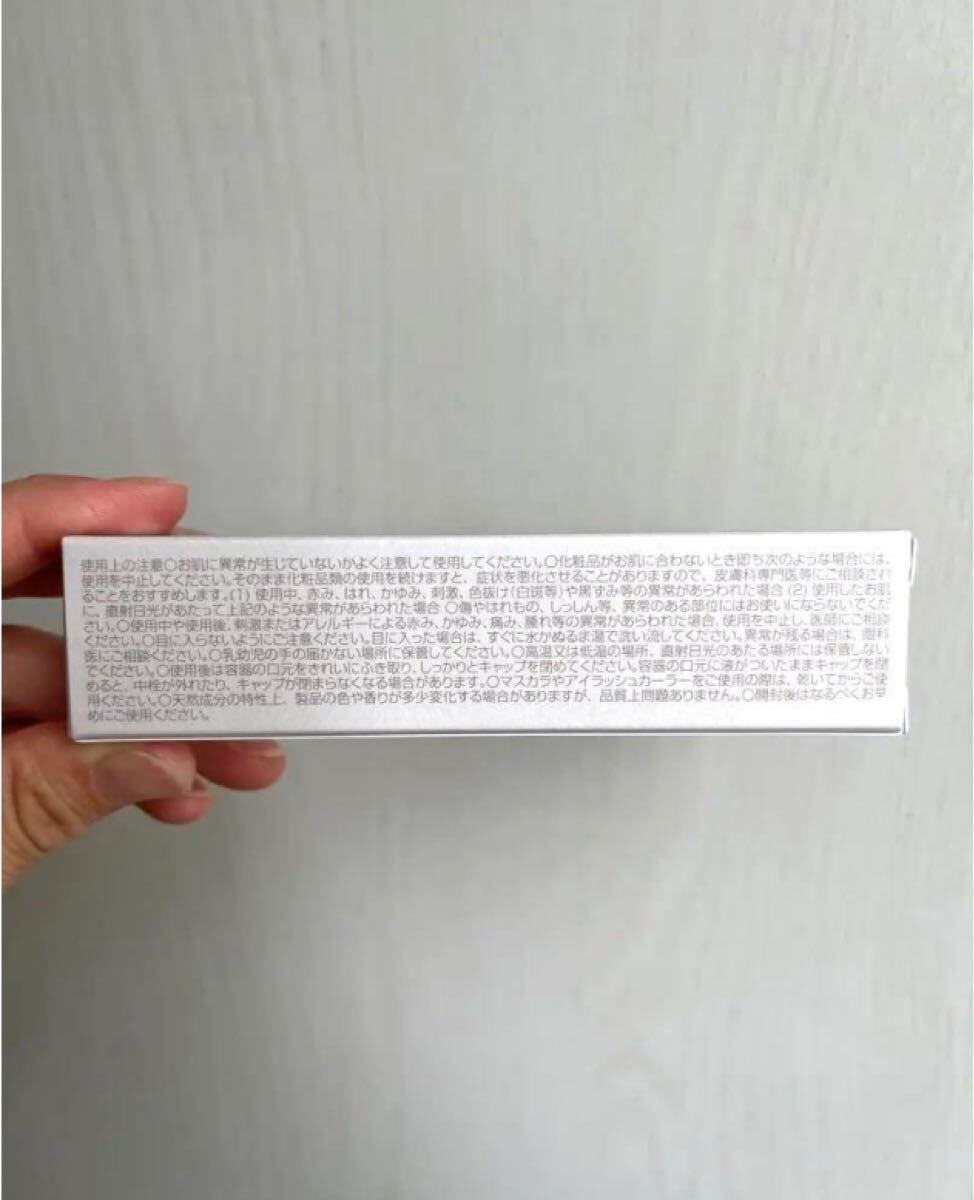 使用上の注意〇お肌に異常が生じていないかよく注意して使用してください。〇化粧品がお肌に合わないとき即ち次のような場合には、
使用を中止してください。そのまま化粧品類の使用を続けますと、症状を悪化させることがありますので、皮膚科専門医等にご相談され
ることをおすすめします。(1) 使用中、赤み、はれ、かゆみ、刺激、色抜け(白斑等)や黒ずみ等の異常があらわれた場合 (2) 使用したお肌
に、直射日光があたって上記のような異常があらわれた場合 〇傷やはれもの、しっしん等、異常のある部位にはお使いにならないでくだ
さい。〇使用中や使用後、刺激またはアレルギーによる赤み、かゆみ、痛み、腫れ等の異常があらわれた場合、使用を中止し、医師にご相談
ください。〇目に入らないようにご注意ください。目に入った場合は、すぐに水かぬるま湯で洗い流してください。異常が残る場合は、眼科
医にご相談ください。〇乳幼児の手の届かない場所に保管してください。〇高温又は低温の場所、直射日光のあたる場所には保管しない
でください。〇使用後は容器の口元をきれいにふき取り、しっかりとキャップを閉めてください。容器の口元に液がついたままキャップを閉
めると、中栓が外れたり、キャップが閉まらなくなる場合があります。〇マスカラやアイラッシュカーラーをご使用の際は、乾いてからご使
用ください。〇天然成分の特性上、製品の色や香りが多少変化する場合がありますが、品質上問題ありません。〇開封後はなるべくお早
めにご使用ください。